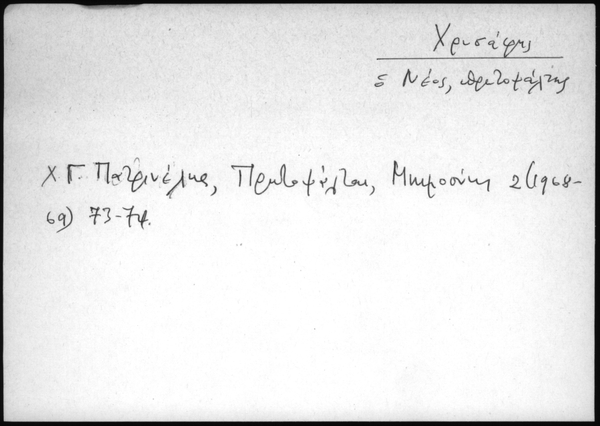 Χρυσάφης
ὁ Νέος, πρωτοψάλτης
Χ Γ. Πατρινέλης, Πρωτοψάλται, Μνημοσύνη 2(1968-
69) 73-74.